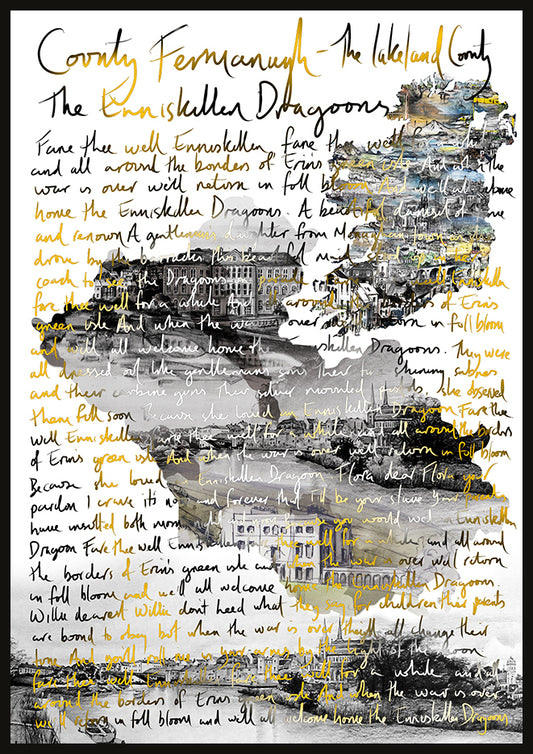 County Fermanagh - The Lakeland County
The Enniskillen Dragoons
Fare thee well Enniskillen fare thee well for a while
and all around the borders of Erin's green isle And when the
war is over we'll return in full bloom And we'll all welcome
home the Enniskillen Dragoons. A beautiful damsel of fame
and renown A gentleman's daughter from Monaghan town
drove by the barracks this beautiful maid
coach to see the Dragoons on parade Enniskillen
fare thee well for a while And around the borders of Erin's
green isle And when the war over we'll return in full bloom
and we'll all welcome home the Enniskillen Dragoons. They were
all dressed out like gentlemans sons Their shining sabres
and their carbine guns Their silver mounted pistols she observed
them full soon Because she loved an Enniskillen Dragoon Fare thee
well Enniskillen fare thee well for a while and all around the borders
of Erin's green isle And when the war is over well return in full bloom
Because she loved Enniskillen Dragoon. Flora dear Flora your
pardon I crave it's now and forever that I'll be your slave Your parents
have insulted both morn you would wed Enniskillen
Dragoon Fare thee well Enniskillen fare thee well for a while and all around
the borders of Erin's green isle and when the war is over well return
in full bloom and we'll all welcome home the Enniskillen Dragoons.
Willie dearest Willie don't heed what they say for children their parents
are bound to obey but when the war is over they'll all change their
tone And you'll roll me in your arms by the light of the moon
fare thee well Enniskillen fare thee well for a while and all
around the borders of Erin's green isle And when the war is over
we'll return in full bloom and well all welcome home the Enniskillen Dragoons